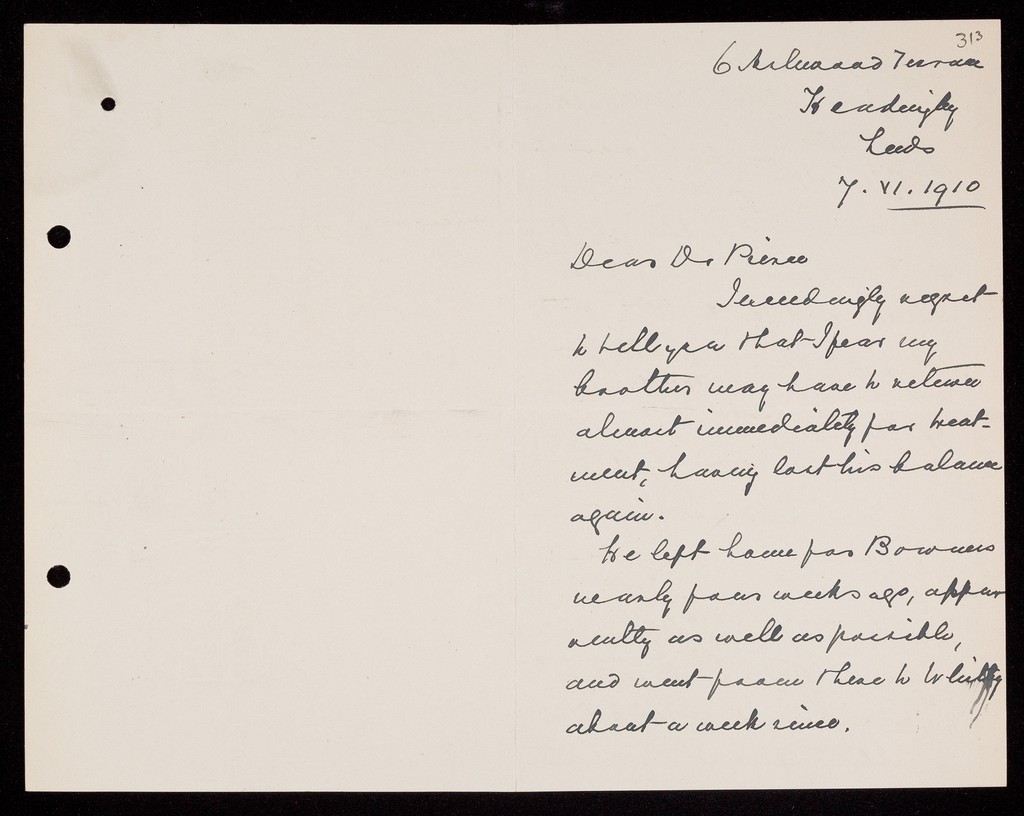 313
6 Ashwood Terrace
Headingley
Leeds
7. VI. 1910
Dear Dr Pierce
I exceedingly regret
to tell you that I fear my
brother may have to return
almost immediately for treat-
ment, having lost his balance
again.
He left home for Bowness
nearly four weeks ago, appar
ently as well as possible,
and went from there to Whitby
about a week since.